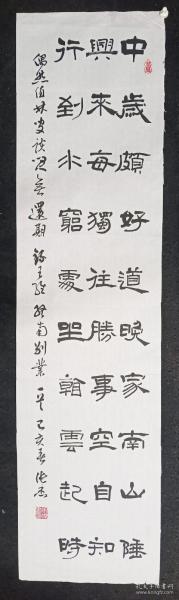 中歲頗好道晚家南山陲
興來每獨往勝事空自知
行到水窮處坐看雲起時
偶然值林叟談笑無還期 錄王維終南別業一首 己亥春